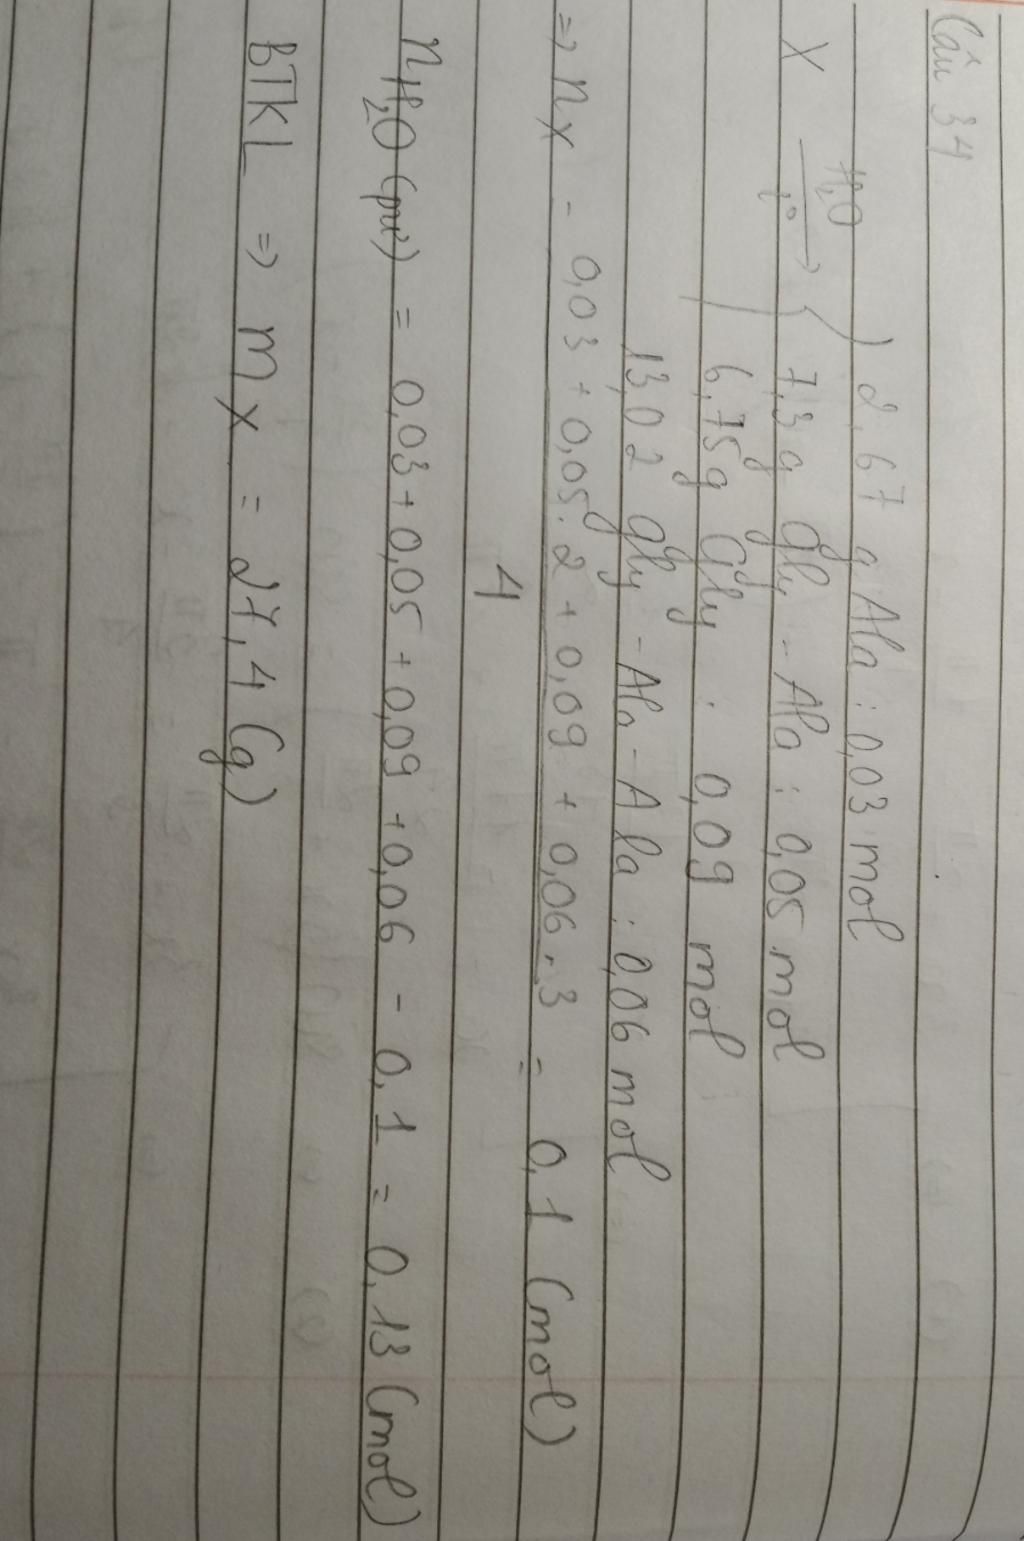 Câu 34
2,67 g Ala : 0,03 mol
X H₂O t° → 7,3g gly - Ala : 0,05 mol
6,75g Gly : 0,09 mol
13,02 gly - Ala - Ala : 0,06 mol
=> nx = 0,03 + 0,05.2 + 0,09 + 0,06.3 = 0,1 (mol)
4
nH₂O (pư) = 0,03 + 0,05 + 0,09 + 0,06 - 0,1 = 0,13 (mol)
BTKL => mx = 27,4 (g)